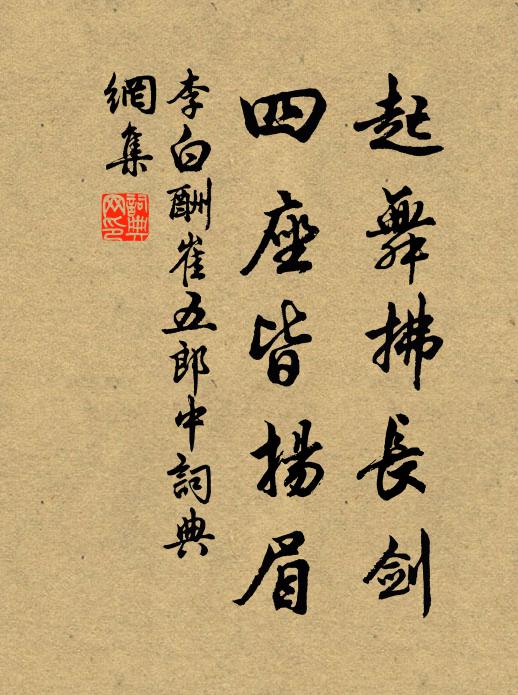 起舞拂長劍
四座皆揚眉
李白酬崔五郎中詞典
網集
詞典
网印